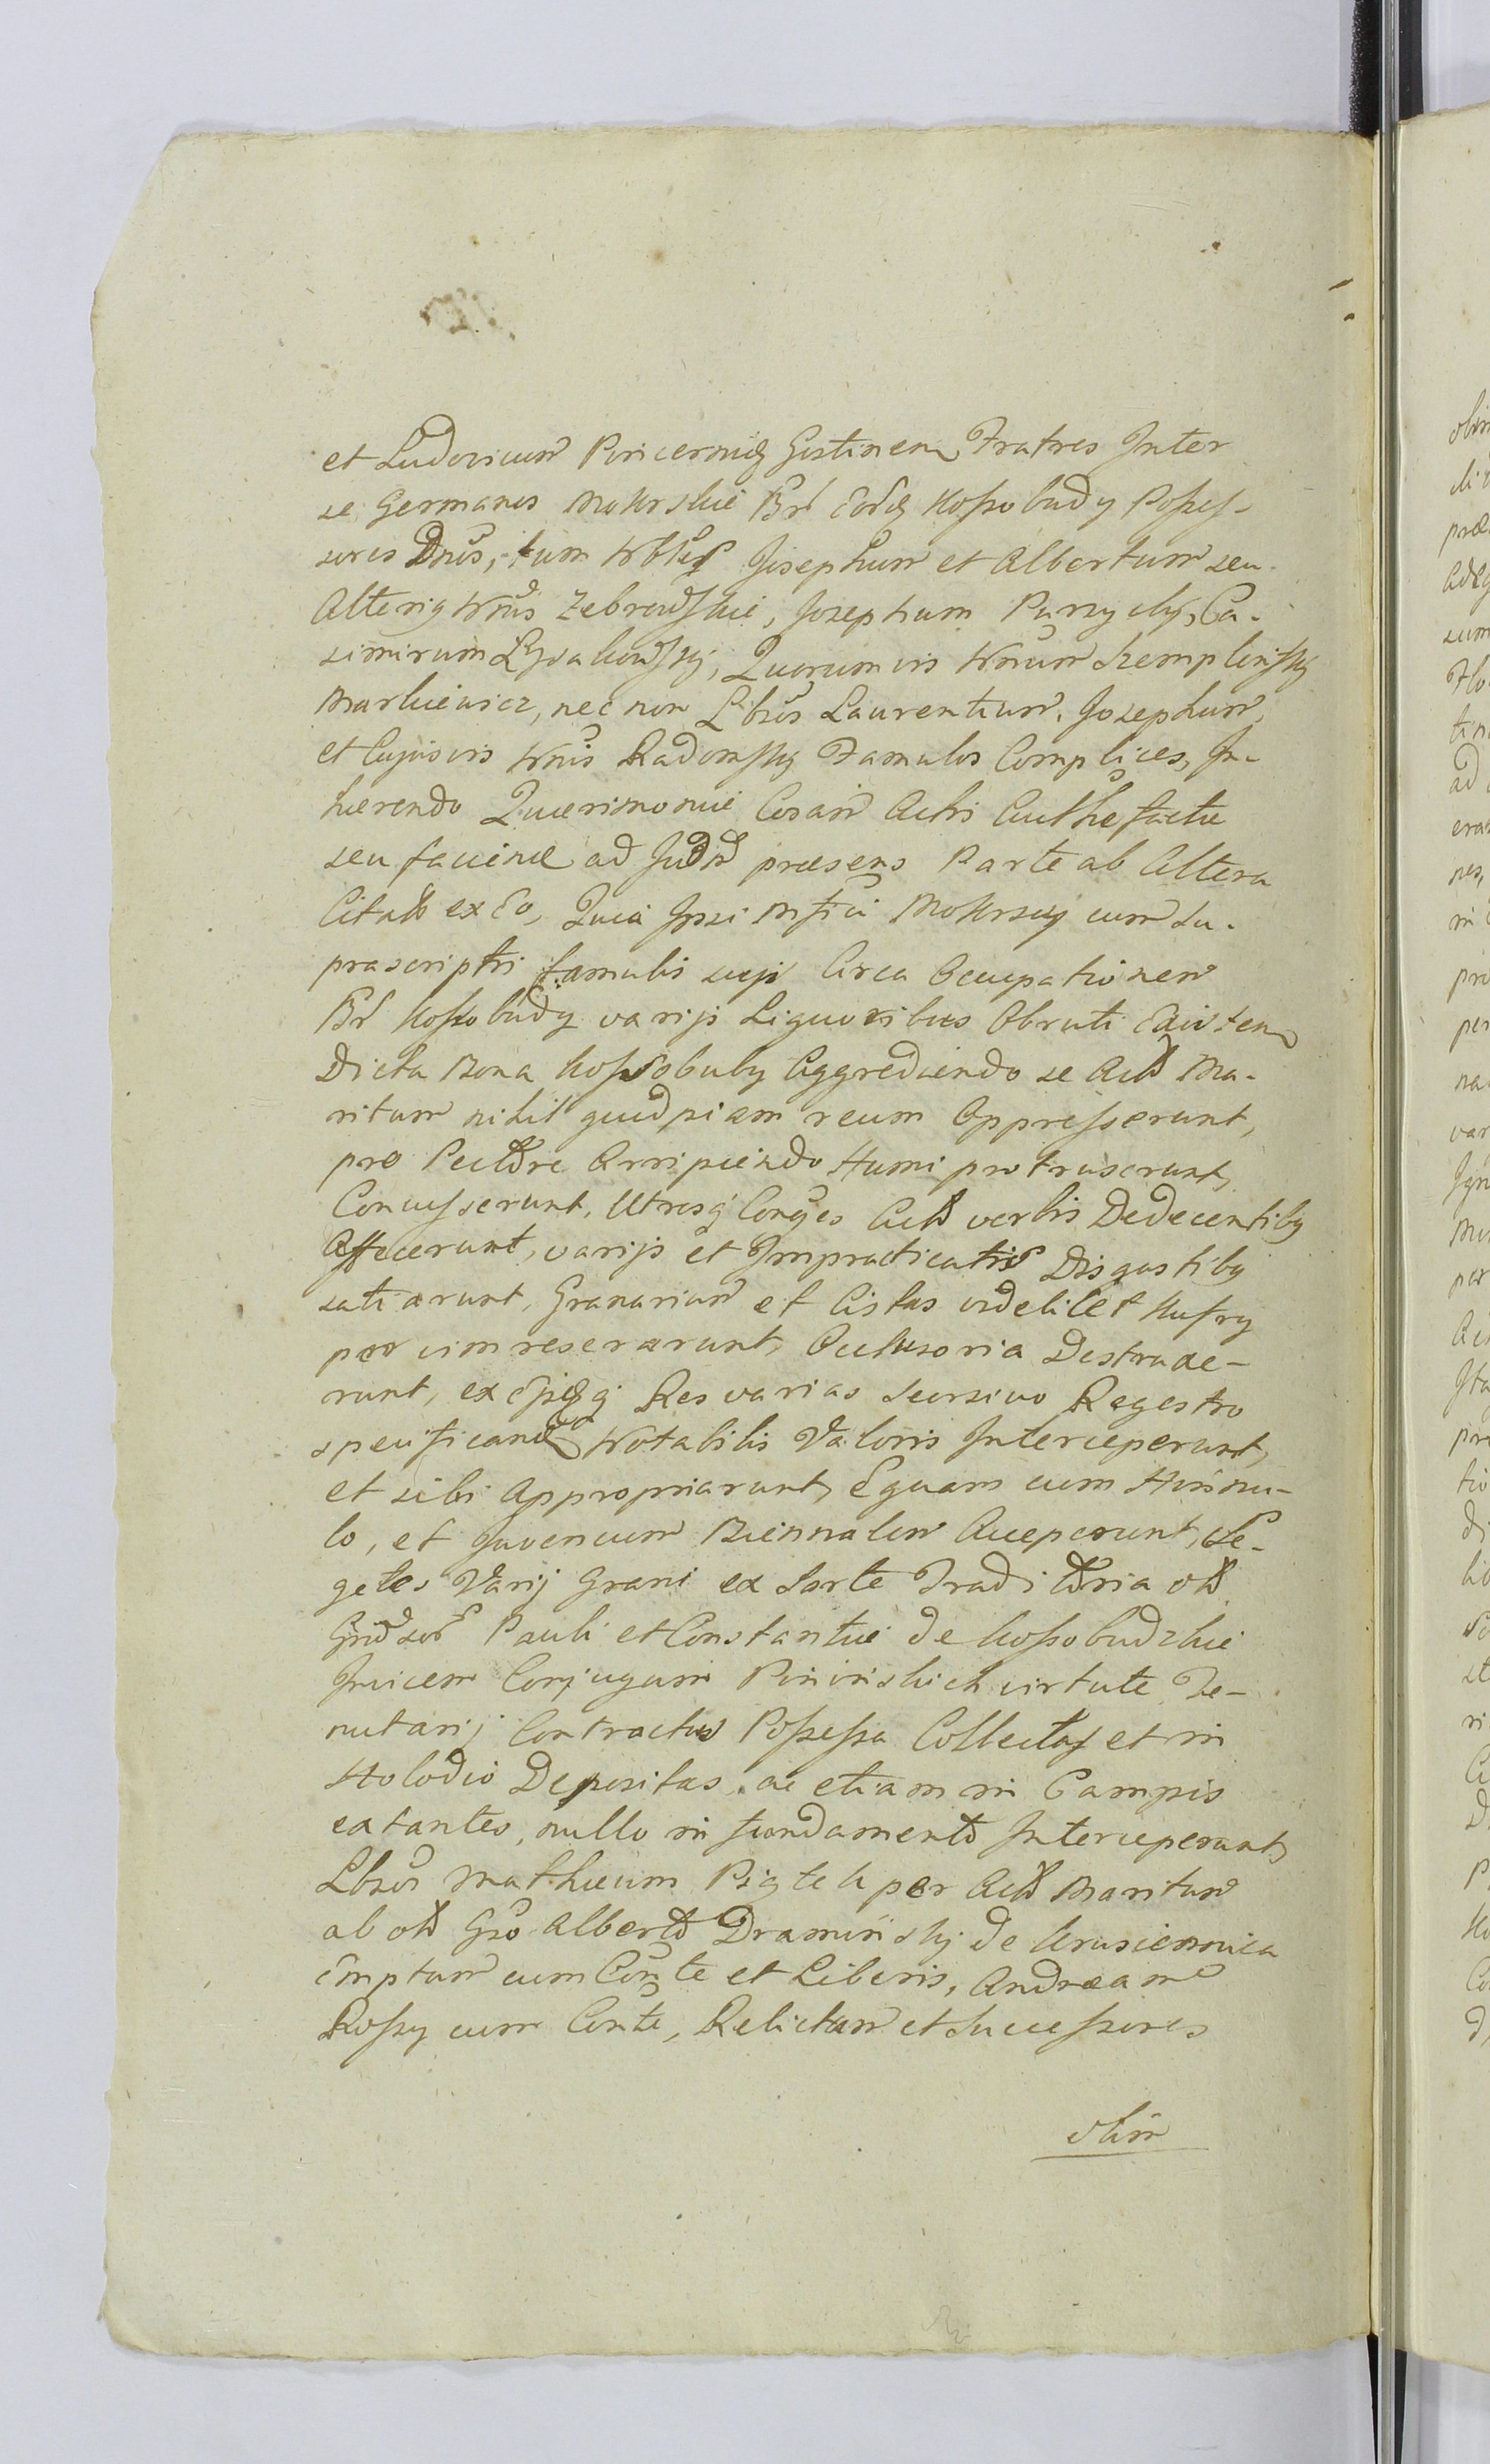 et Ludovicum Pincernidę Gostinen Fratres Inter
se Germanos Mokrskie Br̃ Eorđ Kossobudy Posses-
sores Dnos, tum Nbles Josephum et Albertum seu
Alterig Nnis Zebrowskie, Josephum Purzycky, Ca-
simirum Łysakowsky, Quorumvis Nnium Szemplinsky
Markiewicz, nec non Lbros Laurentium, Josephum,
et Cujusvis Nnis Radomsky Famulos Complices, In-
hærendo Quærimoniæ Coram Actis Authen factæ
seu faciendæ ad Judm præsens Parte ab Altera
Citatos ex Eo, Quia Ipsi Mfici Mokrscy cum Su-
prascriptis famulis suis Circa Occupationem
Br̃ Kossobudy varijs Liquoribus Obruti Eadem
Dicta Bona Kossobudy Aggrediendo se Acto Ma-
ritum nihil quidpiam reum Oppresserunt,
pro Pectore Arripiendo Humi protruserunt,
Concusserunt, Utrosq Conges Acto verbis Dedecentibg
Affecerunt, varijs et Impracticatis Disgustibg
satiarunt, Granarium et Cistas videlicet Kufry
per vim reserarunt, Oclusoria Destruxe-
runt, ex Ejsdq Res varias seorsivo Regestro
specificand Notabilis Valoris Interceperunt,
et sibi Appropriarunt, Equam cum Hinnu-
lo, et Juvencum Biennalem Acceperunt, Se-
getes Varij Grani ex Sorte Traditoria olm
Gnd sor Pauli et Constantiæ de Kossobudzkie
Invicem Conjugum Pniinskich virtute Te-
nutarij Contractus Possessa Collectas et in
Holodio Depositas, ac etiam in Campis
extantes, nullo in fundamento Interceperunt,
Lbros Mathæum Piątek per Acto Maritum
ab olm Gso Alberto Dramiński de Krusiennica
Emptum cum Conte et Liberis, Andream
Rossy cum Conte, Relictam et Successores
olim